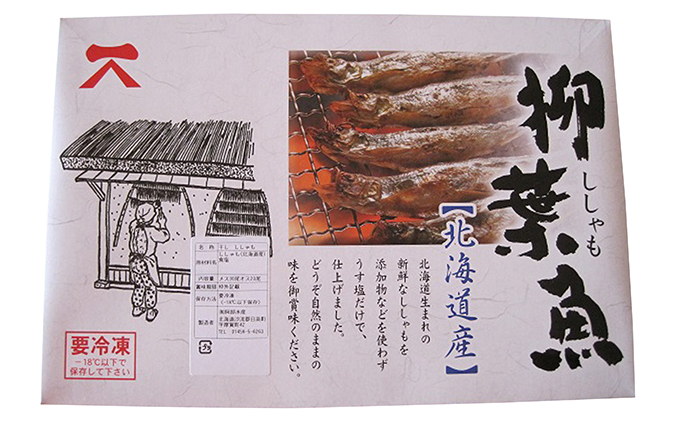 柳葉魚
ししゃも
【北海道産】
北海道生まれの
新鮮なししゃもを
添加物などを使わず
うす塩だけで、
仕上げました。
どうぞ自然のままの
味を御賞味ください。
名称 干し ししゃも
原材料名 ししゃも(北海道産)
食塩
賞味期限 枠外記載
保存方法 要冷凍
(-18℃以下保存)
製造者
プラ
要冷凍
−18℃以下で
保存して下さい